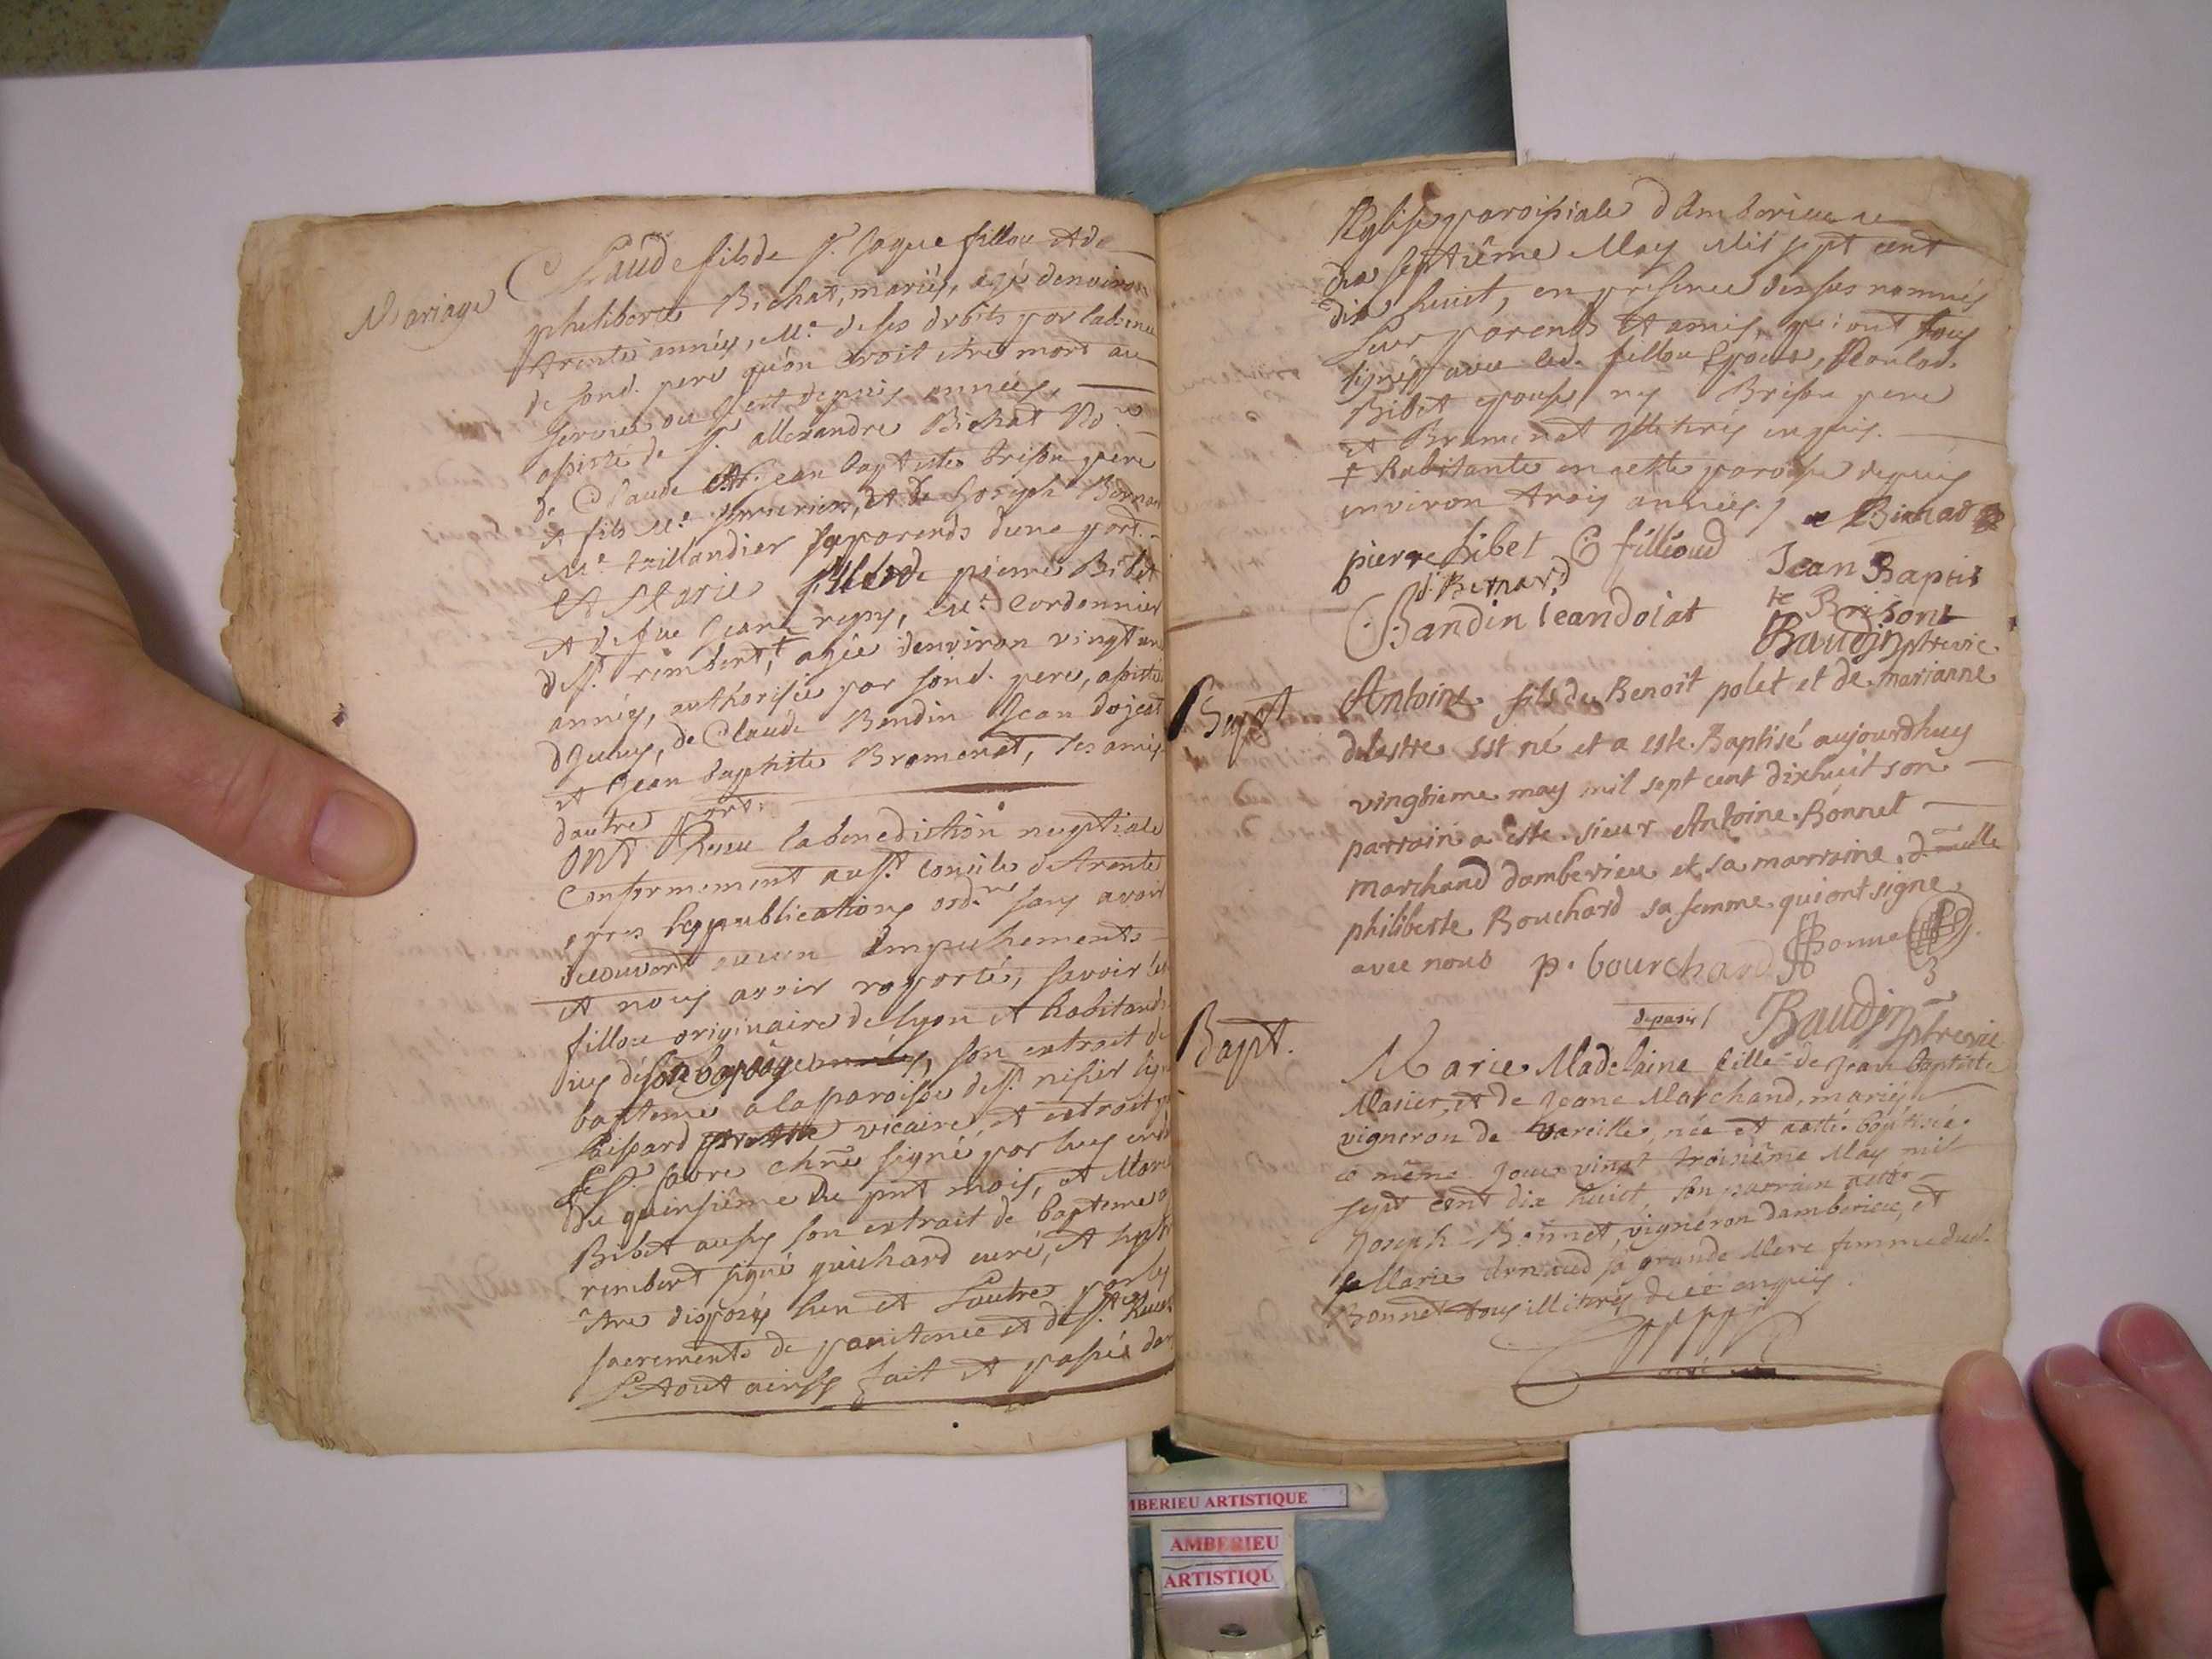 Mariage
Claude fils de Sr. Jaque fillou et de
philiberte Bichat, mariés, agé denviron
trente années, Me. de ses drbits par labsence
de sond. pere qu'on croit etre mort au
service ou il est depuis années,
assisté de Sr. allexandre Bichat
de Claude et Jean baptiste brison pere
et fils Me. serrurier, et de Joseph Bernard
Me. taillandier ses parends dune part.
Et Marie fille de pierre Bibet
et de fue Jeane repy, Me. Cordonnier
de St. rimbert, † agée denviron vingt un
années, authorisée par sond. pere, assistée
diceluy, de Claude Bendin Jean dojeat
et Jean baptiste Bramerat, ses amis
dautre part.
Ont Receu la benediction nuptiale
Conformement au St. concile de trente
apres les publications ordres sans avoir
decouvert aucun Empechements
et nous avoir raporté, savoir led.
fillou originaire de lyon et habitand
icy dés son bas aage, son extrait de
bapteme a la paroisse de St. nisier signé
vicaire, et extroit
chne signé par luy
du quinsiême du pnt mois, et Marie
Bibet aussy son extrait de bapteme
rimbert signé guichard curé, et
être disposés lun et Lautre par les
sacrements de penitence et de ste.
Le tout ainssy fait et passés dans
lEglise paroissiale dAmberieu ce
dix septiême May Mil sept cent
dix huict, en presence dessus nommés
leur parends et amis, qui ont tous
signés avec led. fillou Epoux, Non lad.
Bibet epouse, ny Brison pere
et Bramerat illitirés enquis.
† habitante en cette paroisse depuis
environ trois années.
Bichat
pierre bibet C fillioud Jean Baptis
J. Bernard te Brison
C Bandin Jean doiat Baudin ptre vic.
Bapt
Antoine fils de Benoit polet et de marianne
delestre est né et a esté Baptisé aujourdhuy
vingtieme may mil sept cent dixhuit son
parrain a esté sieur Antoine Bonnet
marchand damberieu et sa marraine delle
philiberte Bouchard sa femme qui ont signe
avec nous p. bourchard Bonnet
Baudin ptre vic
Bapt.
Marie Madelaine fille de Jean baptiste
Masier, et de Jeane Marchand, mariés
vigneron de Vareille, née et a esté baptisée
ce même Jour vingt troisiême May mil
sept cent dix huict, son parrain a esté
Joseph Bonnet, vignéron damberieu, et
Marie Arnaud sa grande Mere femme dud.
Bonnet tous illitirés de ce enquis.
curé
MBERIEU ARTISTIQUE
AMBERIEU
ARTISTIQU